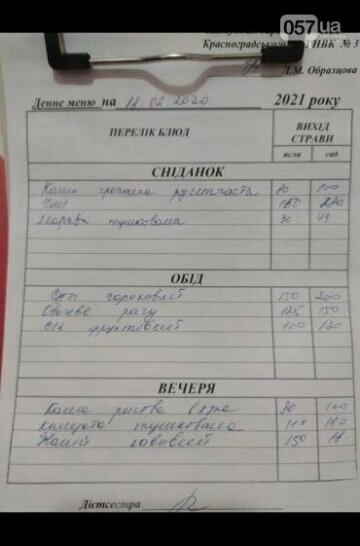 057ua
Красноградського НВК № 3
Л.М. Образцова
Денне меню на 18.02.2020 2021 року
ПЕРЕЛІК БЛЮД ВИХІД СТРАВИ
ясла сад
СНІДАНОК
Каша гречана розсипчаста 80 100
Чай 180
тушкована 30
ОБІД
Суп гороховий 150 200
Овочеве рагу 125 150
Сік фруктовий 100
ВЕЧЕРЯ
Каша рисова в'язка 80 100
капуста тушкована 100 110
Напій кавовий 150
Дієтсестра